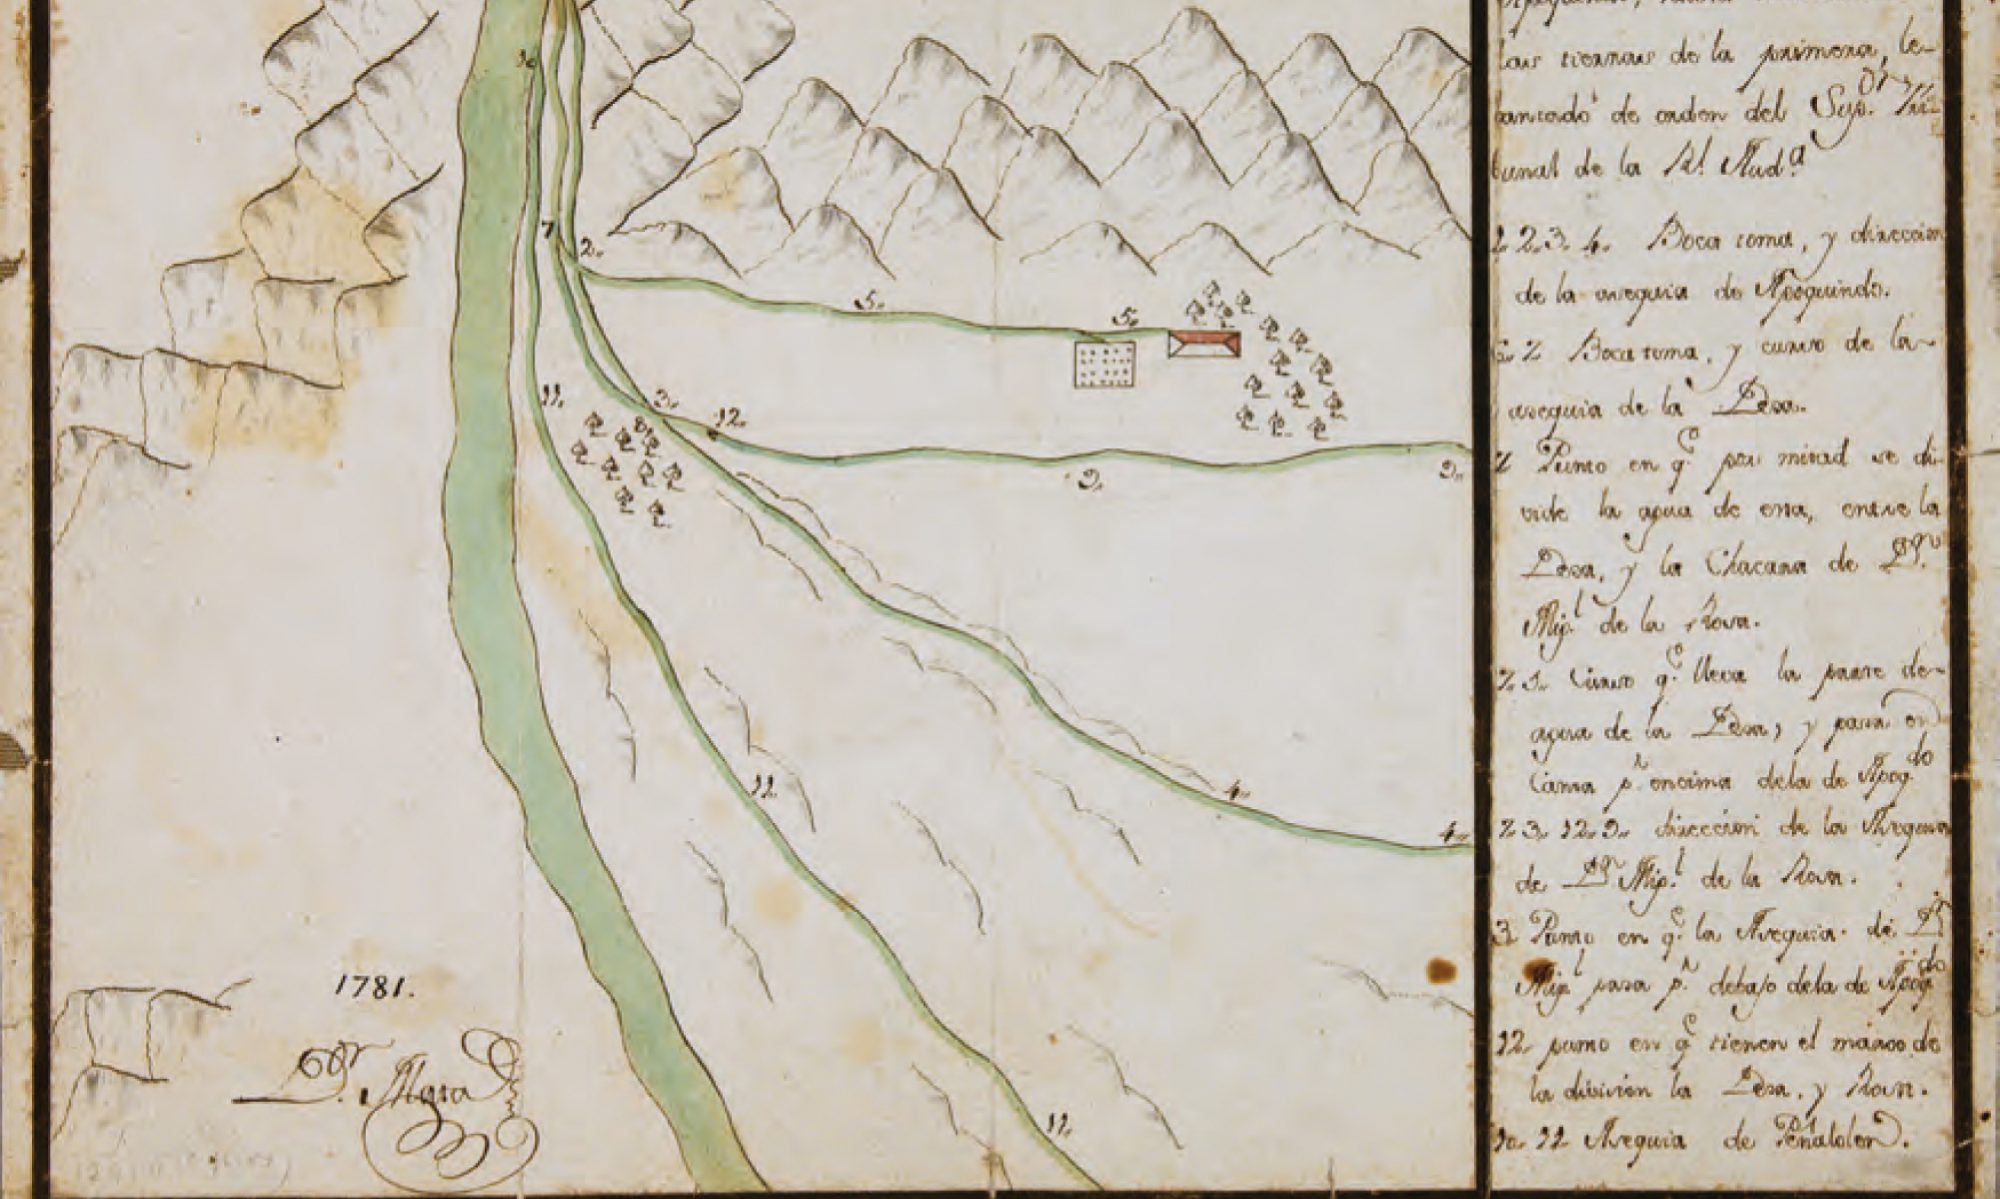 las tierras de la primera, le-
bantado de orden del Sup.or Tri-
bunal de la Rl. Aud.a
1. 2. 3. 4. Boca toma, y direccion
de la asequia de Apoquindo.
6. 7. Boca toma, y curso de la
asequia de la Desa.
7. Punto en q.e por mitad se di-
vide la agua de esta, entre la
Desa, y la Chacara de Dn.
Mig.l de la Rosa.
7. 5. Curso q.e lleva la parte de
agua de la Desa, y pasa en
Canoa p.r encima dela de Apoq.do
7. 3. 12. 9. direccion de la Asequia
de Dn. Mig.l de la Rosa.
3. Punto en q.e la Asequia de Dn.
Mig.l pasa p.r debajo dela de Apoq.do
12. punto en q.e tienen el marco de
la division la Desa, y Rosa.
10. 11 Asequia de Peñalolen.
10
7
2.
5.
5.
11.
3.
12.
9.
9.
11.
4.
4.
11.
1781.